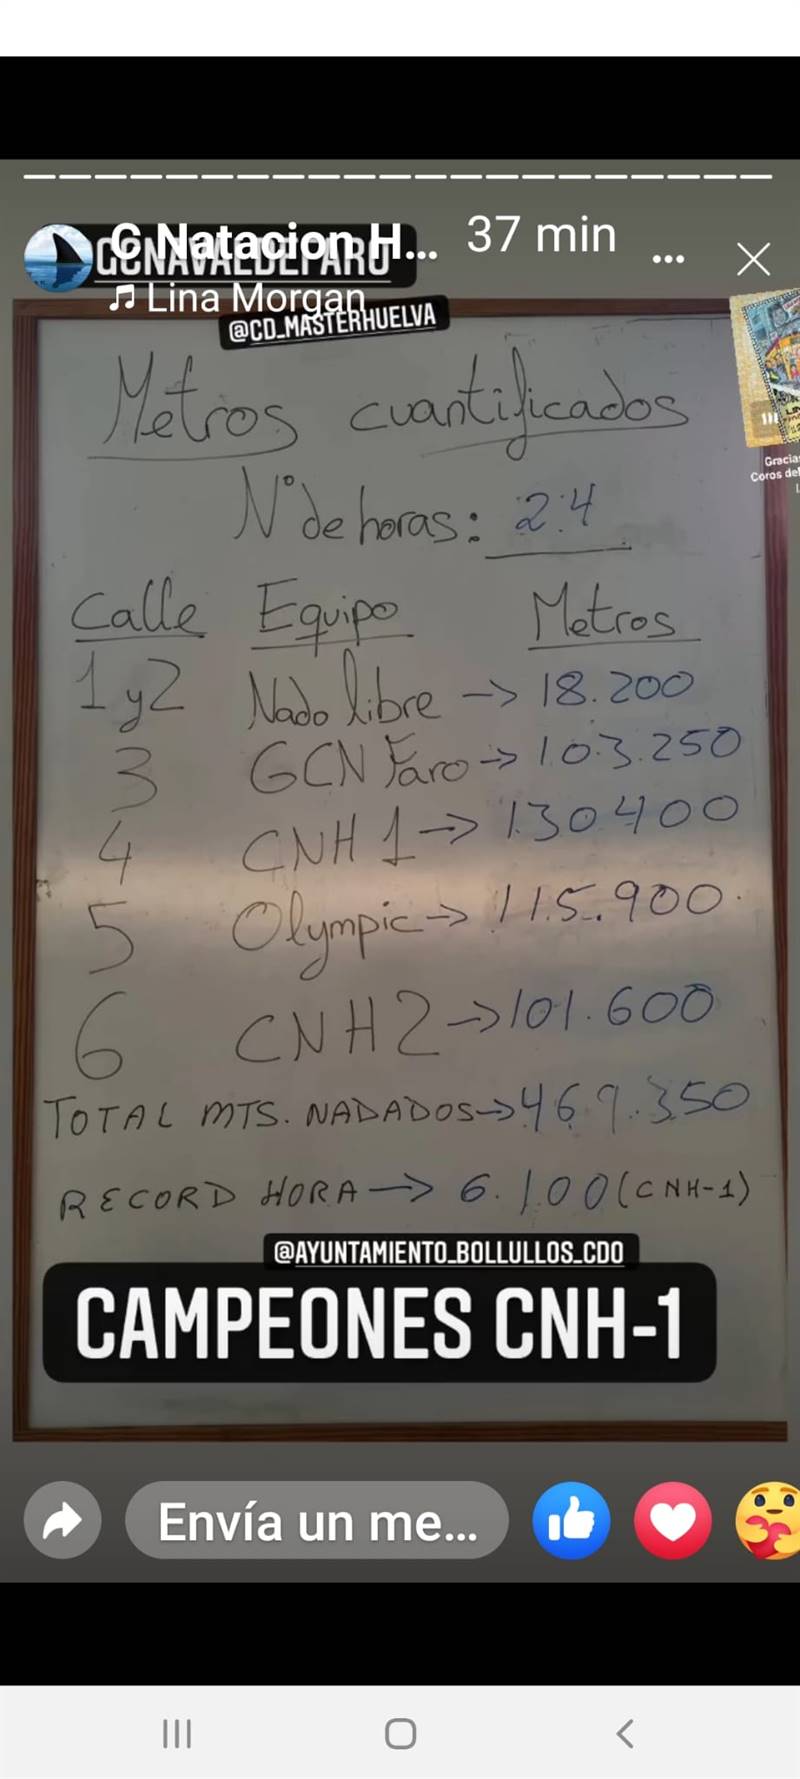 C Natacion H... 37 min
GCNAVALDEFARO
Lina Morgan
@CD_MASTERHUELVA
Metros cuantificados
Gracias
Coros del
Nº de horas: 24
Calle Equipo Metros
1 y 2 Nado libre -> 18.200
3 GCN Faro -> 103.250
4 CNH 1 -> 130400
5 Olympic -> 115.900
6 CNH 2 -> 101.600
TOTAL MTS. NADADOS -> 469.350
RECORD HORA -> 6.100 (CNH-1)
@AYUNTAMIENTO_BOLLULLOS_CDO
CAMPEONES CNH-1
Envía un me...